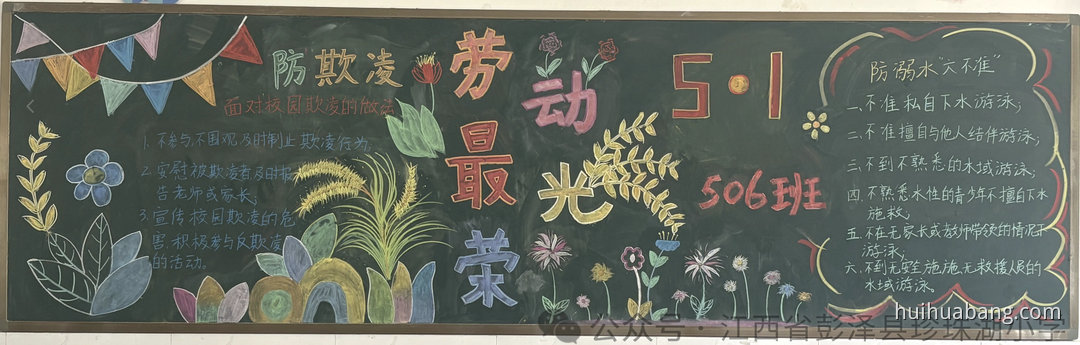 防欺凌
面对校园欺凌的做法
1. 不参与,不围观,及时制止欺凌行为;
2. 安慰被欺凌者及时报
告老师或家长;
3. 宣传校园欺凌的危
害,积极参与反欺凌
的活动。
劳动最光荣
5·1
506班
防溺水“六不准”
一、不准私自下水游泳;
二、不准擅自与他人结伴游泳;
三、不到不熟悉的水域游泳;
四、不熟悉水性的青少年不擅自下水
施救;
五、不在无家长或教师带领的情况下
游泳;
六、不到无安全施施,无救援人员的
水域游泳。
huihuabang.com
公众号·江西省彭泽县珍珠湖小学